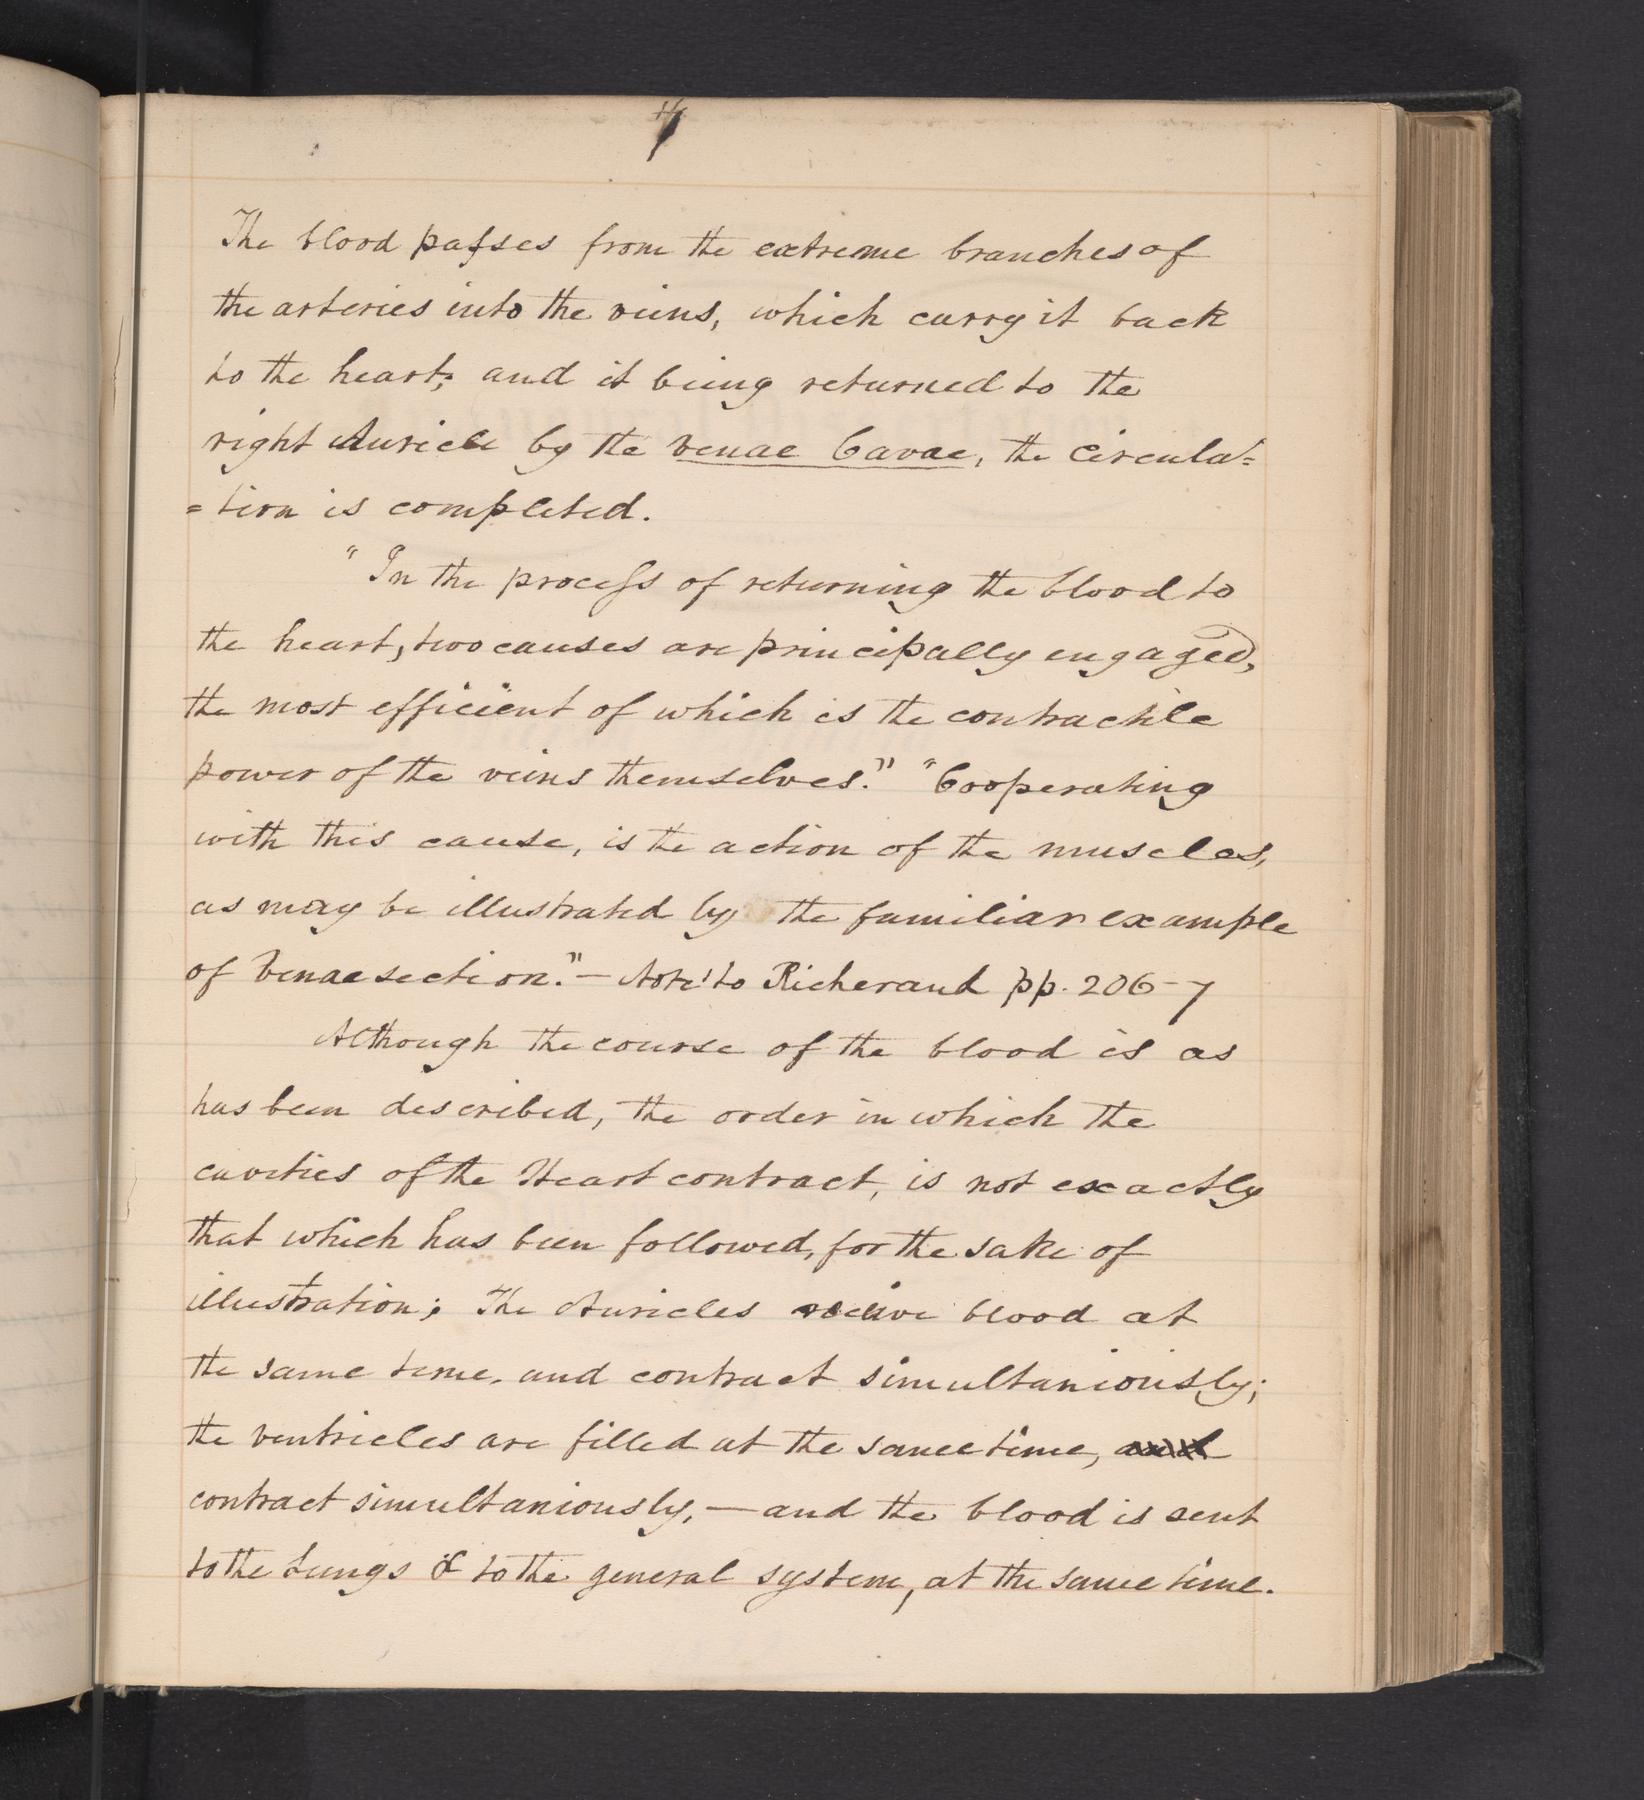 The blood passes from the extreme branches of
the arteries into the veins, which carry it back
to the heart; and it being returned to the
right Auricle by the Venae Cavae, the Circula=
=tion is completed.
"In the process of returning the blood to
the heart, two causes are principally engaged,
the most efficient of which is the contractile
power of the veins themselves." "Cooperating
with this cause, is the action of the muscles,
as may be illustrated by the familiar example
of Venaesection."— Note to Richerand pp. 206-7
Although the course of the blood is as
has been described, the order in which the
cavities of the Heart contract, is not exactly
that which has been followed, for the sake of
illustration; The Auricles receive blood at
the same time, and contract simultaniously;
the ventricles are filled at the same time, and
contract simultaniously,— and the blood is sent
to the Lungs & to the general system, at the same time.